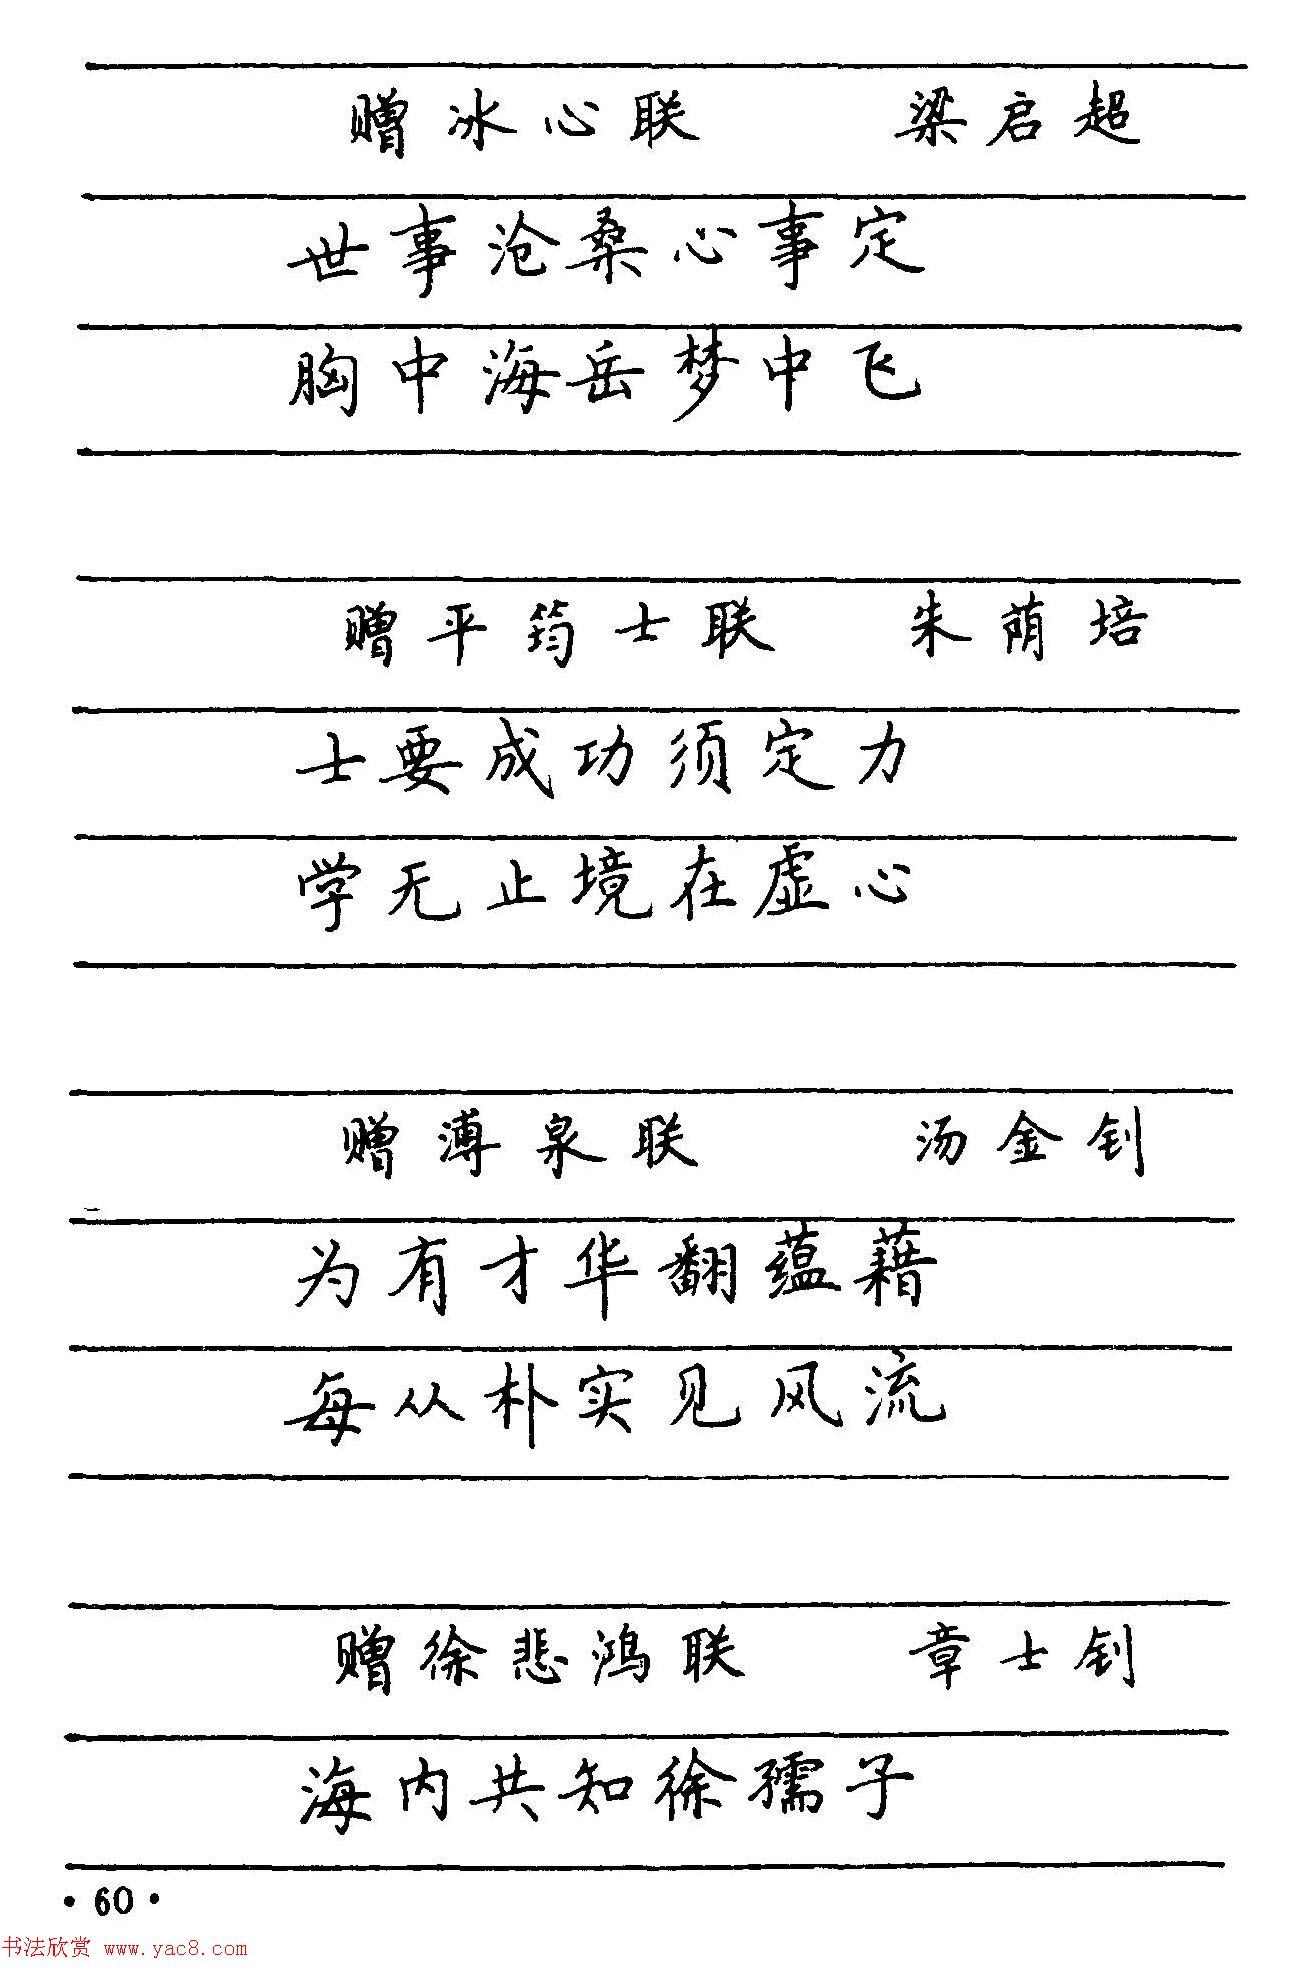 赠冰心联 梁启超
世事沧桑心事定
胸中海岳梦中飞
赠平筠士联 朱荫培
士要成功须定力
学无止境在虚心
赠溥泉联 汤金钊
为有才华翻蕴藉
每从朴实见风流
赠徐悲鸿联 章士钊
海内共知徐孺子
·60·
书法欣赏 www.yac8.com